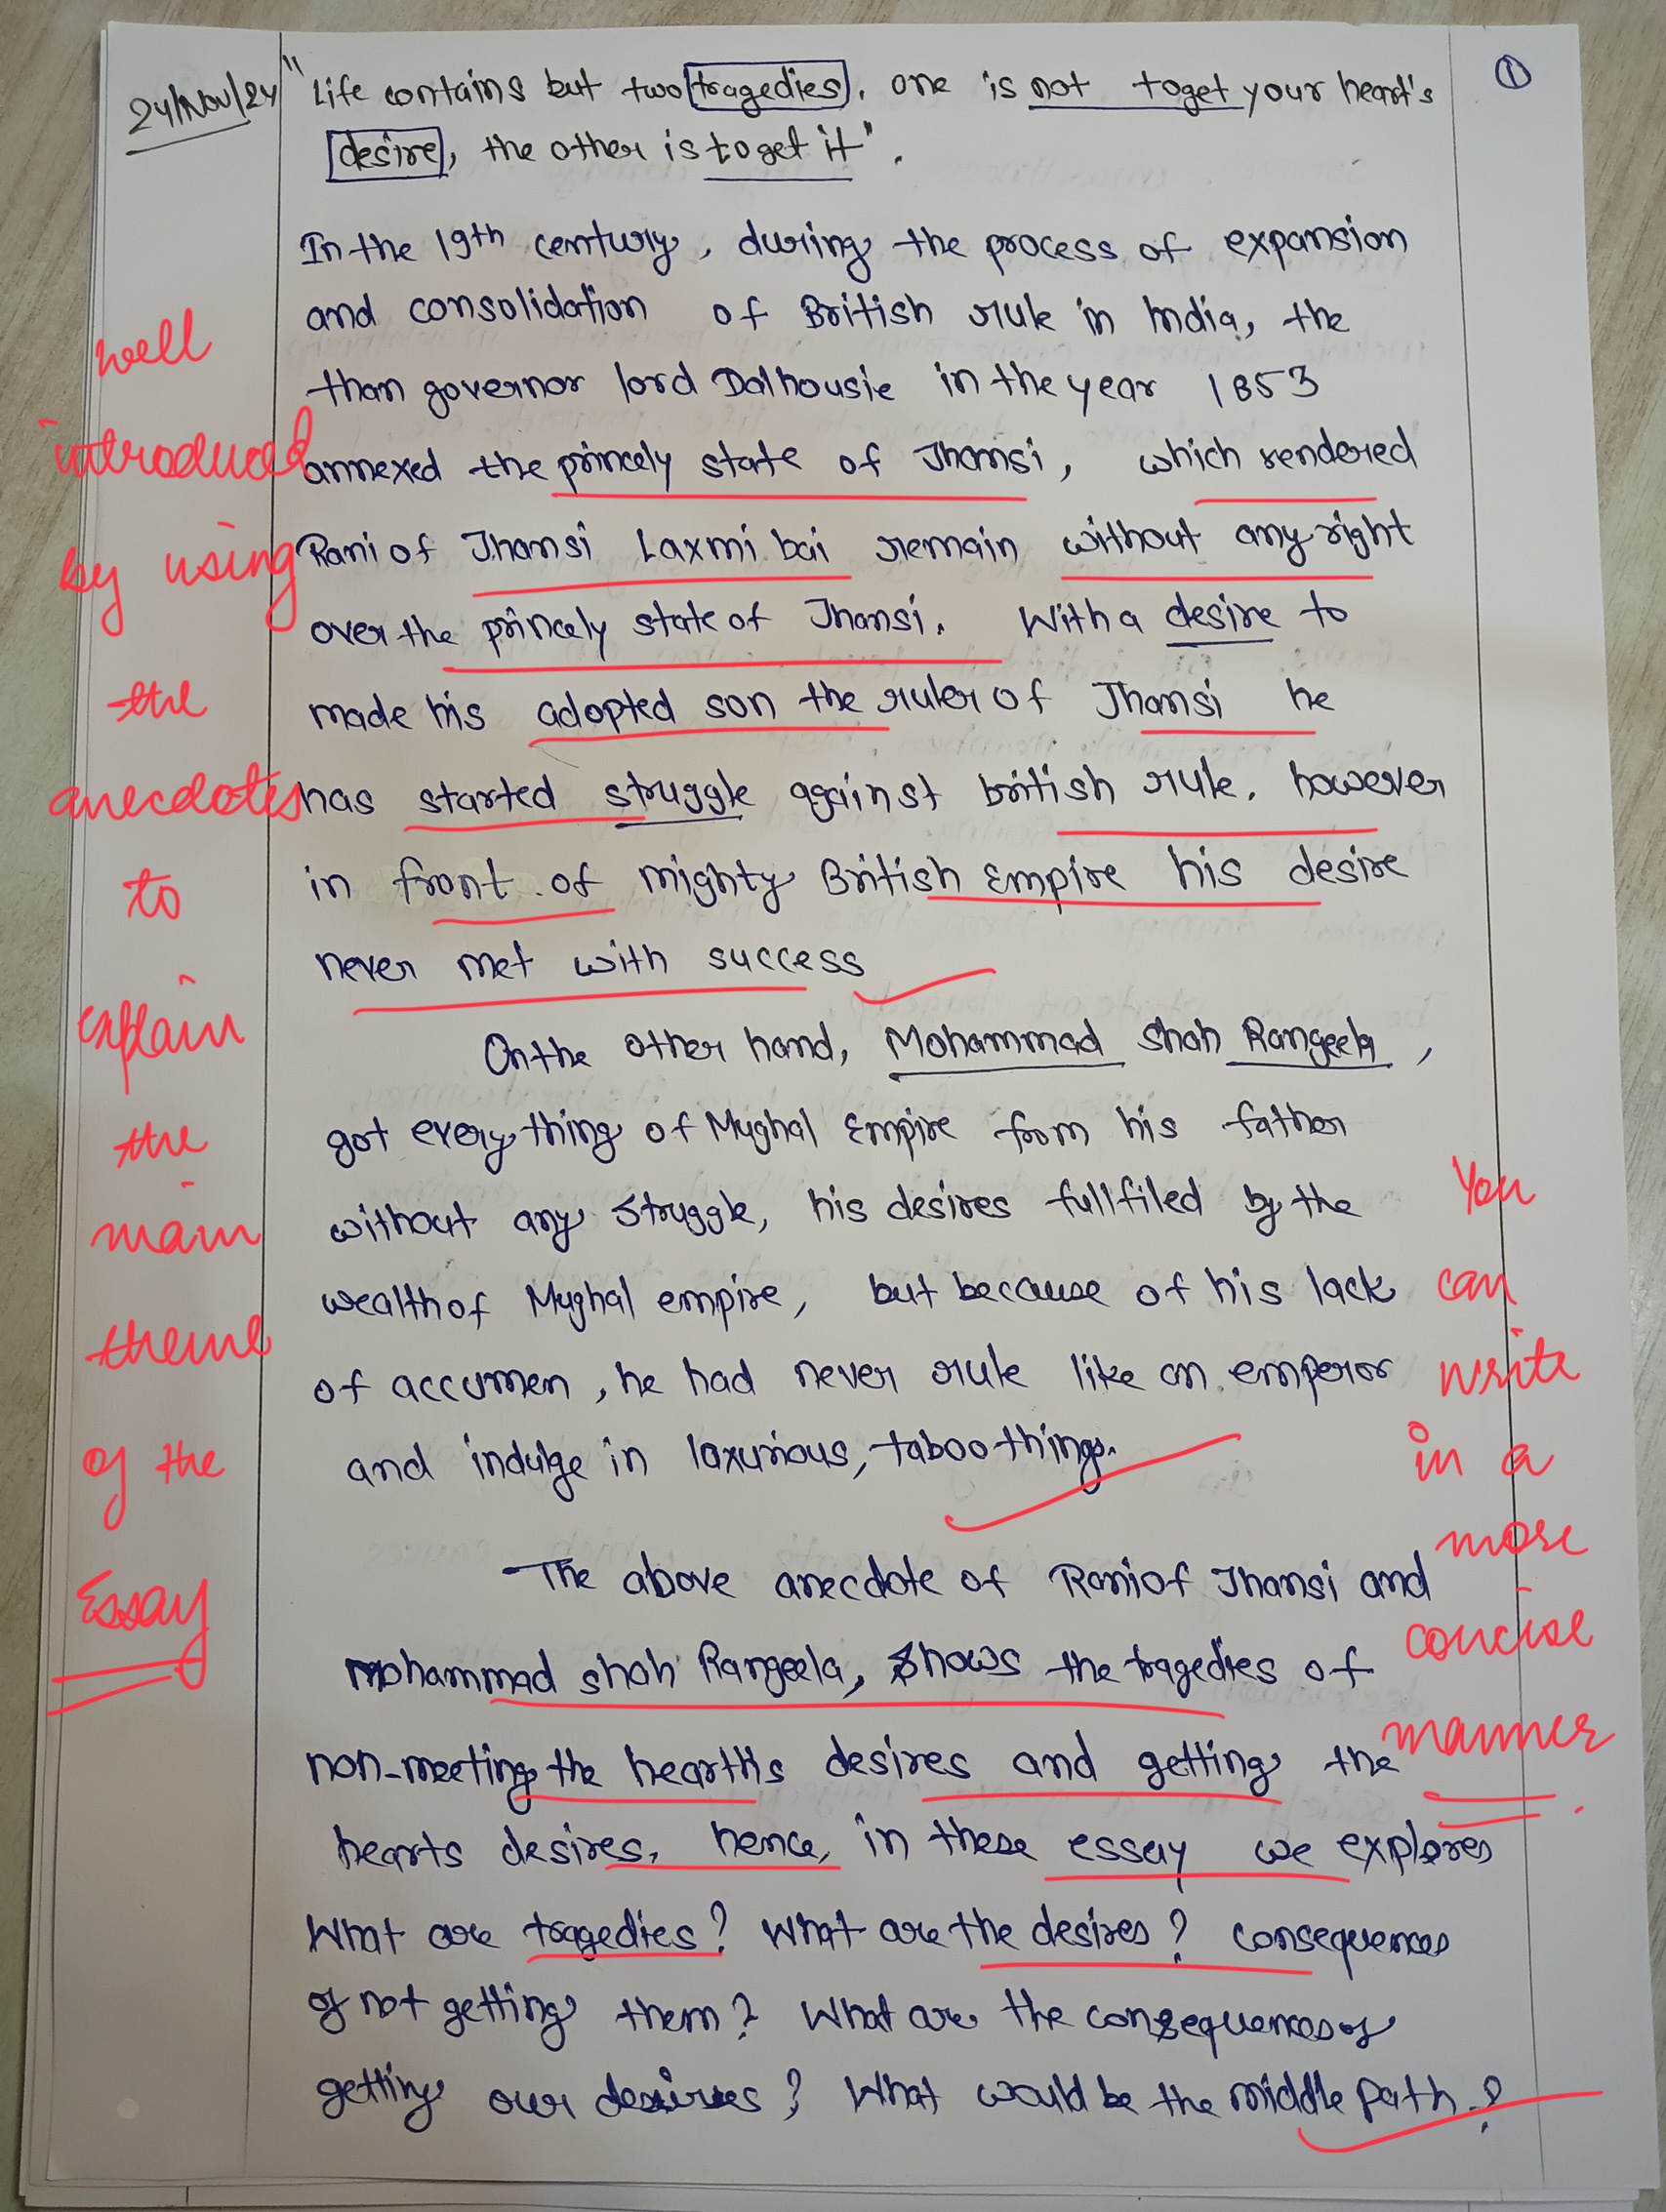 24/Nov/24
"Life contains but two tragedies, one is not toget your heart's
desire, the other is to get it".
①
In the 19th century, during the process of expansion
and consolidation of British rule in India, the
than governor lord Dalhousie in the year 1853
annexed the princely state of Jhansi, which rendered
Rani of Jhansi Laxmi bai remain without any right
over the princely state of Jhansi. With a desire to
made his adopted son the ruler of Jhansi he
has started struggle against british rule. however
in front of mighty British Empire his desire
never met with success
On the other hand, Mohammad shah Rangeela,
got everything of Mughal Empire from his father
without any struggle, his desires fullfiled by the
wealth of Mughal empire, but because of his lack
of accumen, he had never rule like an emperor
and indulge in laxurious, taboo things.
The above anecdote of Rani of Jhansi and
mohammad shah Rangeela, shows the tragedies of
non-meeting the hearth's desires and getting the
hearts desires, hence, in these essay we explores
What are tragedies? What are the desires? consequences
of not getting them? What are the consequences of
getting our desires? What would be the middle path?
well
introduced
by using
the
anecdotes
to
explain
the
main
theme
of the
Essay
You
can
write
in a
more
concise
manner.